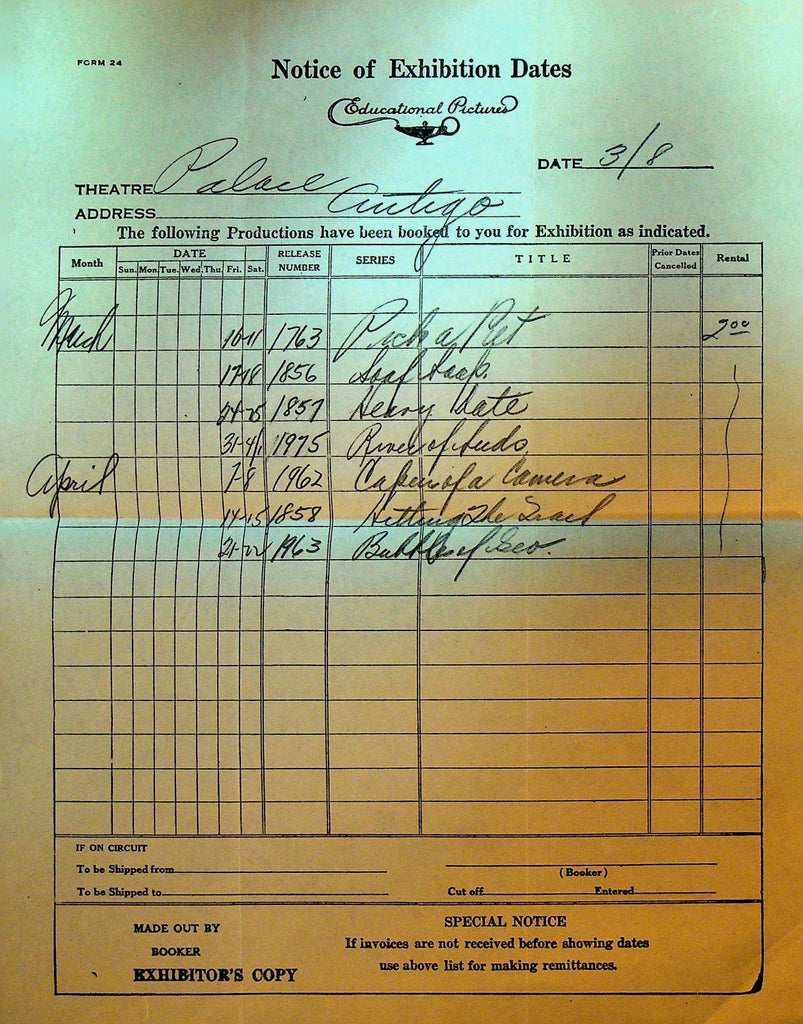 FORM 24
Notice of Exhibition Dates
Educational Pictures
DATE 3/8
THEATRE Palace
ADDRESS Antigo
The following Productions have been booked to you for Exhibition as indicated.
Month DATE RELEASE NUMBER SERIES TITLE Prior Dates Cancelled Rental
Sun. Mon. Tue. Wed. Thu. Fri. Sat.
March 10-11 1763 Pick a Pet 2.00
17-18 1856 Loaf Soap
24-25 1857 Heavy Date
31-4/1 1975 River of
April 7-8 1962 of a Camera
14-15 1858 Hitting The Trail
21-22 1963 Bubbles of Geo.
IF ON CIRCUIT
To be Shipped from
(Booker)
To be Shipped to Cut off Entered
MADE OUT BY
BOOKER
EXHIBITOR'S COPY
SPECIAL NOTICE
If invoices are not received before showing dates
use above list for making remittances.